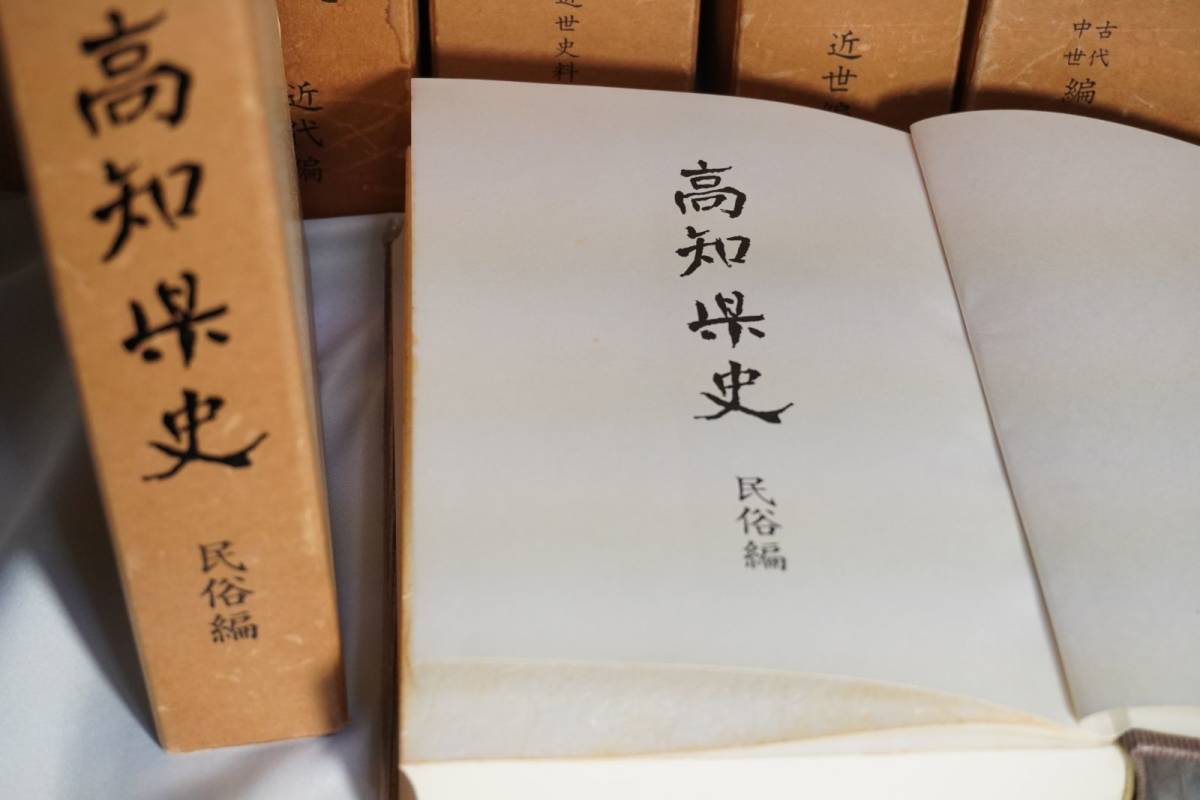 高知県史
民俗編
近代編
近世史料
近世編
古代
中世
編
高知県史
民俗編